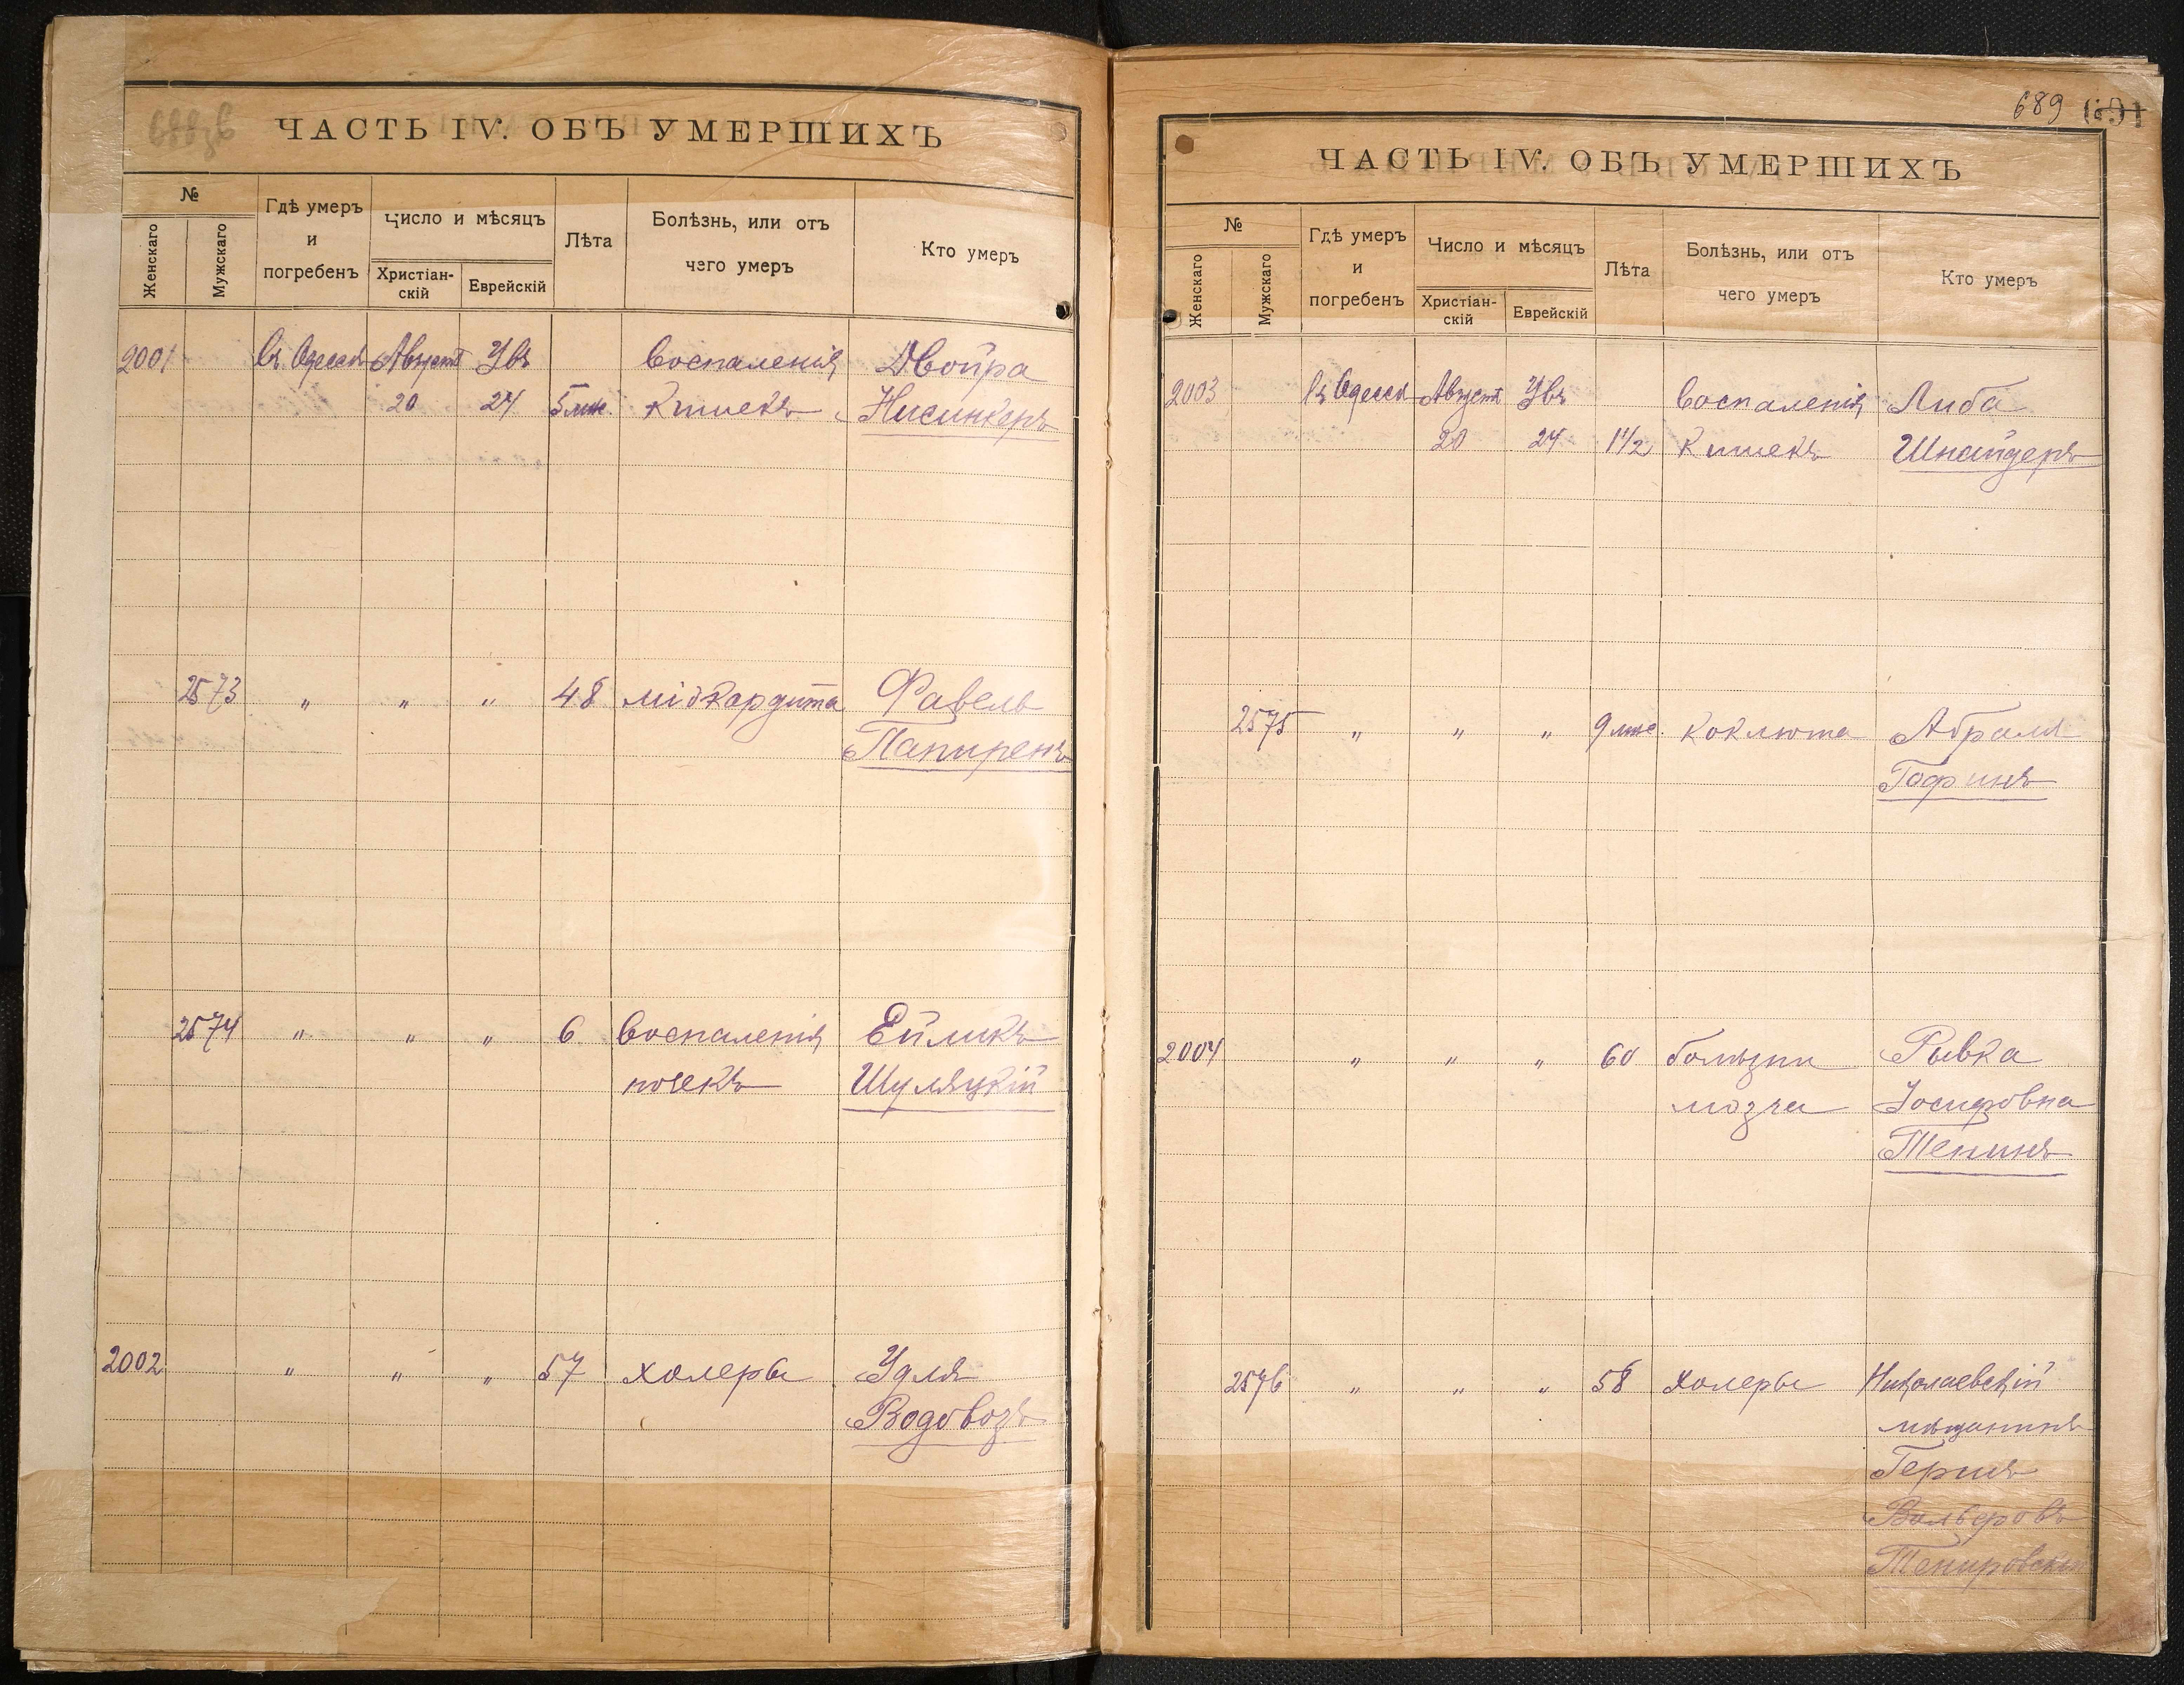 ЧАСТЬ IV. ОБЪ УМЕРШИХЪ
№
Женскаго
Мужскаго
Гдѣ умеръ
и
погребенъ
Число и мѣсяцъ
Христіан-
скій
Еврейскій
Лѣта
Болѣзнь, или отъ
чего умеръ
Кто умеръ
2001 Въ Одессѣ Августа Увъ воспаленія Двойра
20 24 5 мѣс. кишекъ Нисинкеръ
2573 " " " 48 міокардита Фавель
Папиренъ
2574 " " " 6 воспаленія Ейликъ
почекъ Шуляцкій
2002 " " " 57 холеры Удля
Водовозъ
689
ЧАСТЬ IV. ОБЪ УМЕРШИХЪ
№
Женскаго
Мужскаго
Гдѣ умеръ
и
погребенъ
Число и мѣсяцъ
Христіан-
скій
Еврейскій
Лѣта
Болѣзнь, или отъ
чего умеръ
Кто умеръ
2003 Въ Одессѣ Августа Увъ воспаленія Либа
20 24 1 1/2 кишекъ Шнайдеръ
2575 " " " 9 мѣс. коклюша Абрамъ
Гофинъ
2004 " " " 60 болѣзни Рывка
мозга Іосифовна
Тенинъ
2576 " " " 58 холеры Николаевскій
мѣщанинъ
Гершъ
Вольфовъ